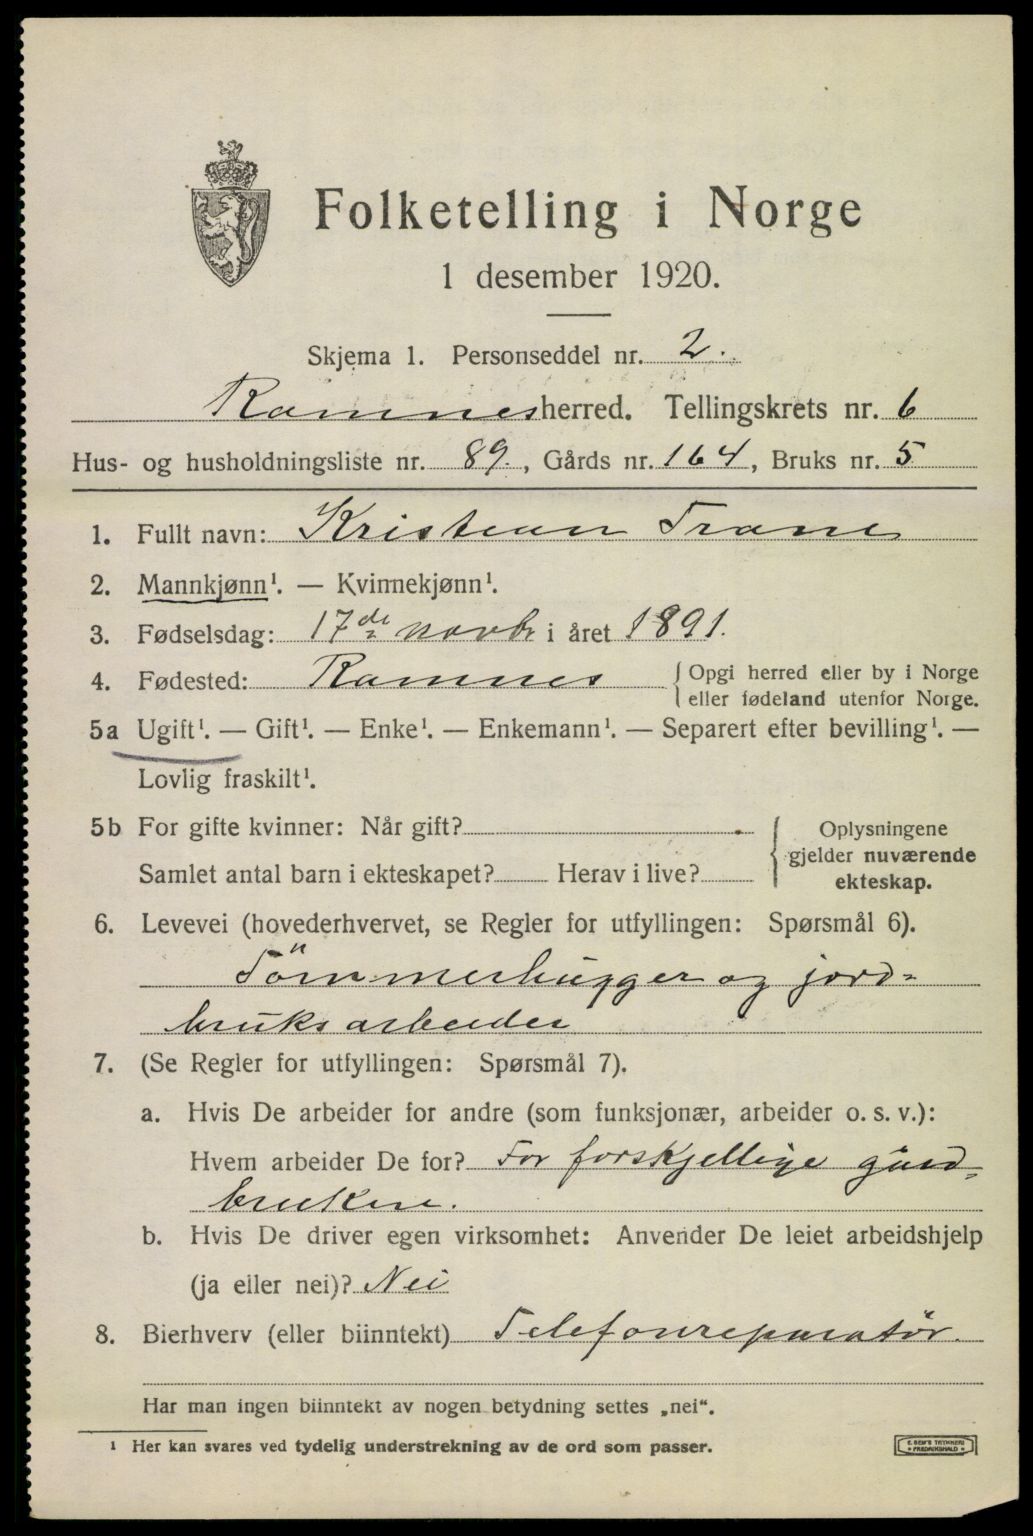 Folketelling i Norge
1 desember 1920.
Skjema 1. Personseddel nr. 2.
Ramnes herred. Tellingskrets nr. 6
Hus- og husholdningsliste nr. 89., Gårds nr. 164, Bruks nr. 5
1. Fullt navn: Kristian Trane
2. Mannkjønn¹. — Kvinnekjønn¹.
3. Fødselsdag: 17de novbr i året 1891.
4. Fødested: Ramnes { Opgi herred eller by i Norge
eller fødeland utenfor Norge.
5a Ugift¹. — Gift¹. — Enke¹. — Enkemann¹. — Separert efter bevilling¹. —
Lovlig fraskilt¹.
5b For gifte kvinner: Når gift?
Samlet antal barn i ekteskapet? Herav i live?
{ Oplysningene
gjelder nuværende
ekteskap.
6. Levevei (hovederhvervet, se Regler for utfyllingen: Spørsmål 6).
Tömmerhugger og jord-
bruksarbeider
7. (Se Regler for utfyllingen: Spørsmål 7).
a. Hvis De arbeider for andre (som funksjonær, arbeider o. s. v.):
Hvem arbeider De for? For forskjellige gård-
brukere.
b. Hvis De driver egen virksomhet: Anvender De leiet arbeidshjelp
(ja eller nei)? Nei
8. Bierhverv (eller biinntekt) Telefonreparatör.
Har man ingen biinntekt av nogen betydning settes „nei“.
¹ Her kan svares ved tydelig understrekning av de ord som passer.
E. SEM'S TRYKKERI
FREDRIKSHALD